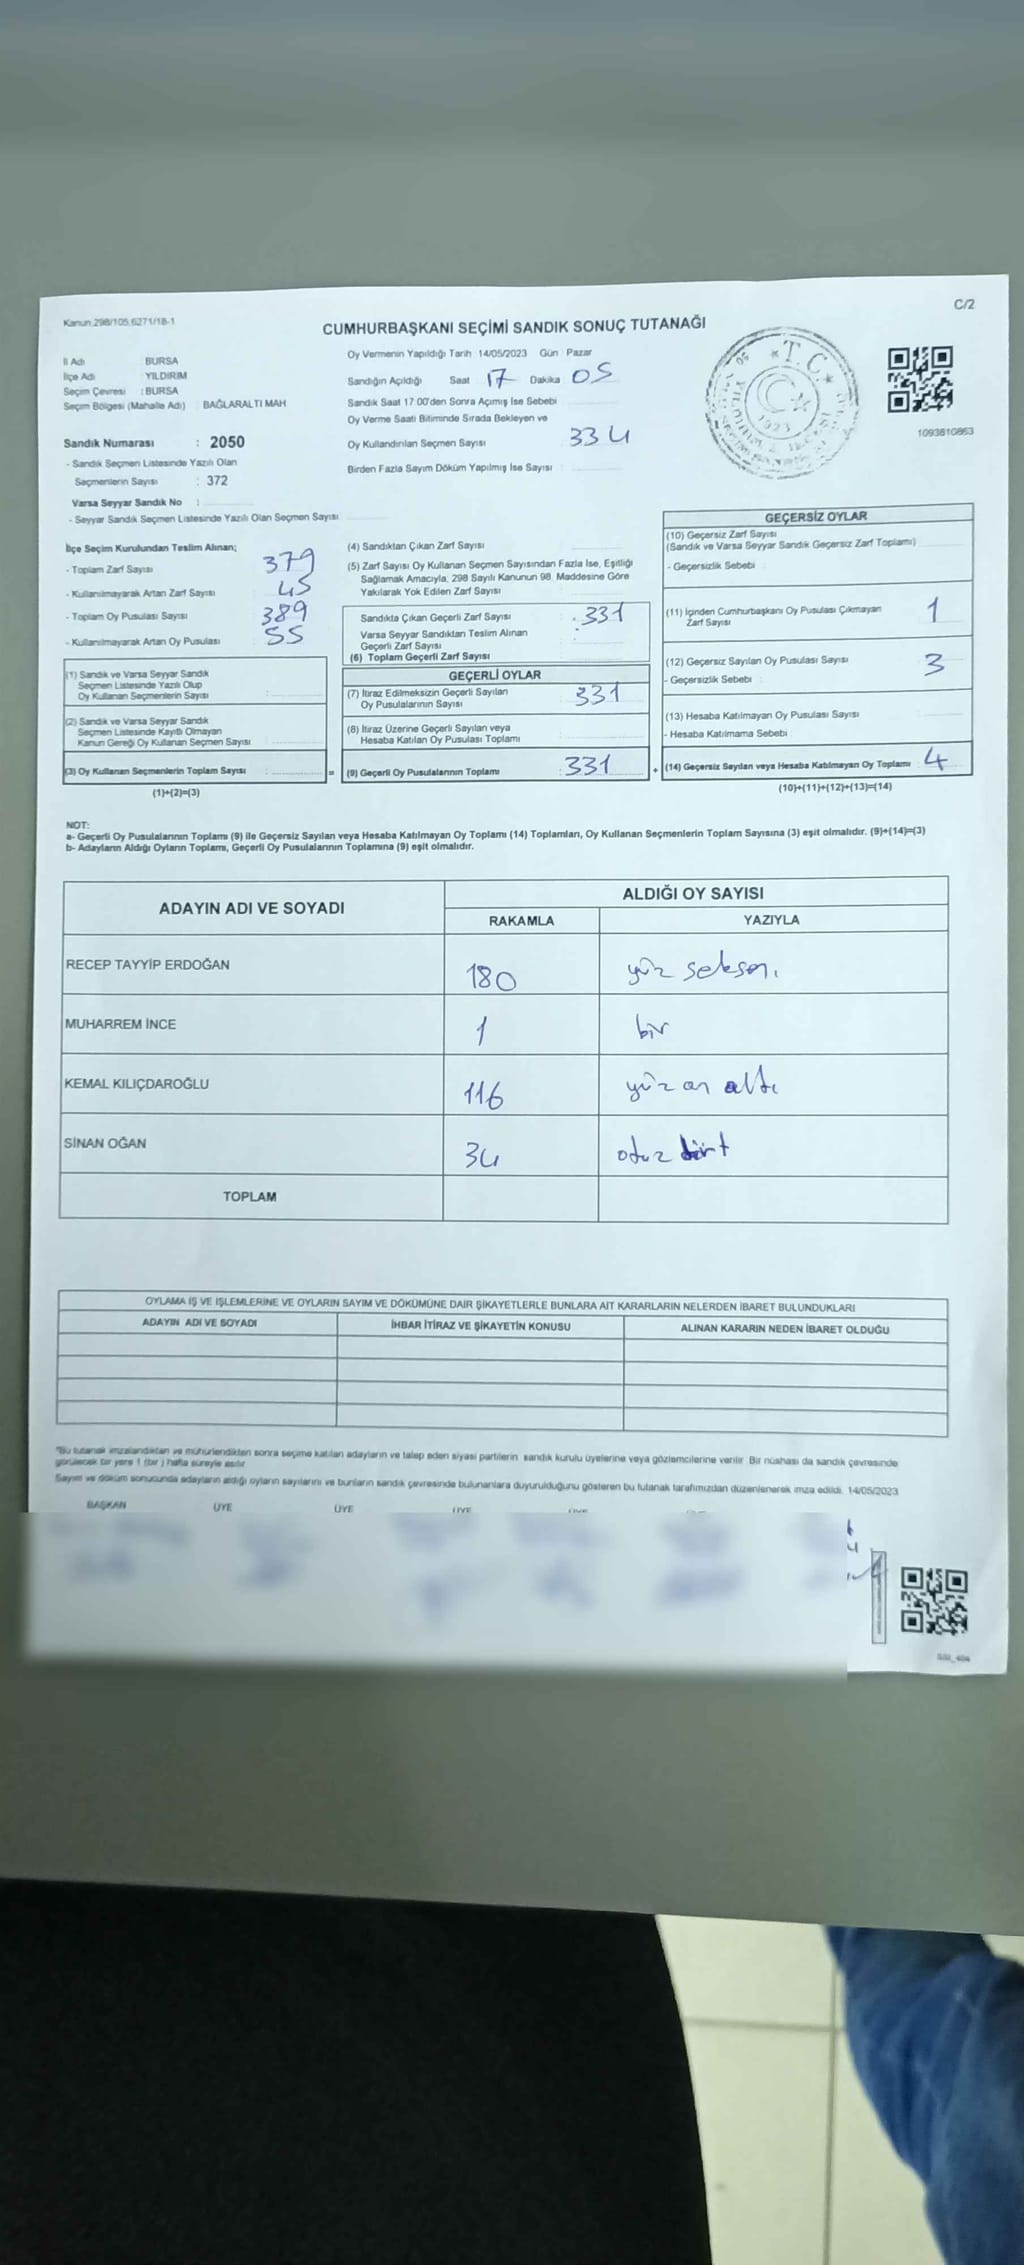 Kanun 298/105,6271/18-1
C/2
CUMHURBAŞKANI SEÇİMİ SANDIK SONUÇ TUTANAĞI
İl Adı BURSA
İlçe Adı YILDIRIM
Seçim Çevresi : BURSA
Seçim Bölgesi (Mahalle Adı) : BAĞLARALTI MAH
Sandık Numarası : 2050
- Sandık Seçmen Listesinde Yazılı Olan
Seçmenlerin Sayısı : 372
Varsa Seyyar Sandık No :
- Seyyar Sandık Seçmen Listesinde Yazılı Olan Seçmen Sayısı
Oy Vermenin Yapıldığı Tarih : 14/05/2023 Gün : Pazar
Sandığın Açıldığı Saat 17 Dakika : 05
Sandık Saat 17:00'den Sonra Açımış İse Sebebi
Oy Verme Saati Bitiminde Sırada Bekleyen ve
Oy Kullandırılan Seçmen Sayısı 334
Birden Fazla Sayım Döküm Yapılmış İse Sayısı :
T.C.
1923
1093810863
İlçe Seçim Kurulundan Teslim Alınan;
- Toplam Zarf Sayısı 379
- Kullanılmayarak Artan Zarf Sayısı 45
- Toplam Oy Pusulası Sayısı 389
- Kullanılmayarak Artan Oy Pusulası 55
(1) Sandık ve Varsa Seyyar Sandık
Seçmen Listesinde Yazılı Olup
Oy Kullanan Seçmenlerin Sayısı :
(2) Sandık ve Varsa Seyyar Sandık
Seçmen Listesinde Kayıtlı Olmayan
Kanun Gereği Oy Kullanan Seçmen Sayısı
(3) Oy Kullanan Seçmenlerin Toplam Sayısı : =
(1)+(2)=(3)
(4) Sandıktan Çıkan Zarf Sayısı
(5) Zarf Sayısı Oy Kullanan Seçmen Sayısından Fazla İse, Eşitliği
Sağlamak Amacıyla, 298 Sayılı Kanunun 98. Maddesine Göre
Yakılarak Yok Edilen Zarf Sayısı
Sandıkta Çıkan Geçerli Zarf Sayısı : 331
Varsa Seyyar Sandıktan Teslim Alınan
Geçerli Zarf Sayısı :
(6) Toplam Geçerli Zarf Sayısı
GEÇERLİ OYLAR
(7) İtiraz Edilmeksizin Geçerli Sayılan
Oy Pusulalarının Sayısı : 331
(8) İtiraz Üzerine Geçerli Sayılan veya
Hesaba Katılan Oy Pusulası Toplamı
(9) Geçerli Oy Pusulalarının Toplamı : 331 +
GEÇERSİZ OYLAR
(10) Geçersiz Zarf Sayısı
(Sandık ve Varsa Seyyar Sandık Geçersiz Zarf Toplamı)
- Geçersizlik Sebebi
(11) İçinden Cumhurbaşkanı Oy Pusulası Çıkmayan
Zarf Sayısı 1
(12) Geçersiz Sayılan Oy Pusulası Sayısı 3
- Geçersizlik Sebebi :
(13) Hesaba Katılmayan Oy Pusulası Sayısı
- Hesaba Katılmama Sebebi
(14) Geçersiz Sayılan veya Hesaba Katılmayan Oy Toplamı : 4
(10)+(11)+(12)+(13)=(14)
NOT:
a- Geçerli Oy Pusulalarının Toplamı (9) ile Geçersiz Sayılan veya Hesaba Katılmayan Oy Toplamı (14) Toplamları, Oy Kullanan Seçmenlerin Toplam Sayısına (3) eşit olmalıdır. (9)+(14)=(3)
b- Adayların Aldığı Oyların Toplamı, Geçerli Oy Pusulalarının Toplamına (9) eşit olmalıdır.
ADAYIN ADI VE SOYADI
ALDIĞI OY SAYISI
RAKAMLA YAZIYLA
RECEP TAYYİP ERDOĞAN 180 yüz seksen.
MUHARREM İNCE 1 bir
KEMAL KILIÇDAROĞLU 116 yüz on altı
SİNAN OĞAN 34 otuz dört
TOPLAM
OYLAMA İŞ VE İŞLEMLERİNE VE OYLARIN SAYIM VE DÖKÜMÜNE DAİR ŞİKAYETLERLE BUNLARA AİT KARARLARIN NELERDEN İBARET BULUNDUKLARI
ADAYIN ADI VE SOYADI İHBAR İTİRAZ VE ŞİKAYETİN KONUSU ALINAN KARARIN NEDEN İBARET OLDUĞU
*Bu tutanak imzalandıktan ve mühürlendikten sonra seçime katılan adayların ve talep eden siyasi partilerin sandık kurulu üyelerine veya gözlemcilerine verilir. Bir nüshası da sandık çevresinde
görülecek bir yere 1 (bir) hafta süreyle asılır.
Sayım ve döküm sonucunda adayların aldığı oyların sayılarını ve bunların sandık çevresinde bulunanlara duyurulduğunu gösteren bu tutanak tarafımızdan düzenlenerek imza edildi. 14/05/2023
BAŞKAN ÜYE ÜYE ÜYE